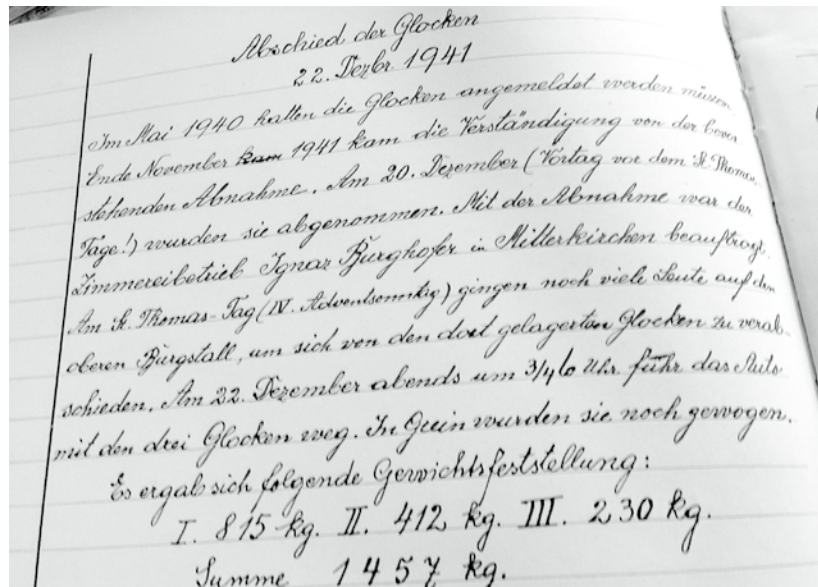 Abschied der Glocken
22. Dezbr. 1941
Im Mai 1940 hatten die Glocken angemeldet werden müssen.
Ende November kam 1941 kam die Verständigung von der bevor-
stehenden Abnahme. Am 20. Dezember (Vortag vor dem St. Thomas-
Tage!) wurden sie abgenommen. Mit der Abnahme war der
Zimmereibetrieb Ignaz Burghofer in Mitterkirchen beauftragt.
Am St. Thomas-Tag (IV. Adventsonntag) gingen noch viele Leute auf den
oberen Burgstall, um sich von den dort gelagerten Glocken zu verab-
schieden. Am 22. Dezember abends um 3/4 6 Uhr fuhr das Auto
mit den drei Glocken weg. In Grein wurden sie noch gewogen.
Es ergab sich folgende Gewichtsfeststellung:
I. 815 kg. II. 412 kg. III. 230 kg.
Summe 1457 kg.